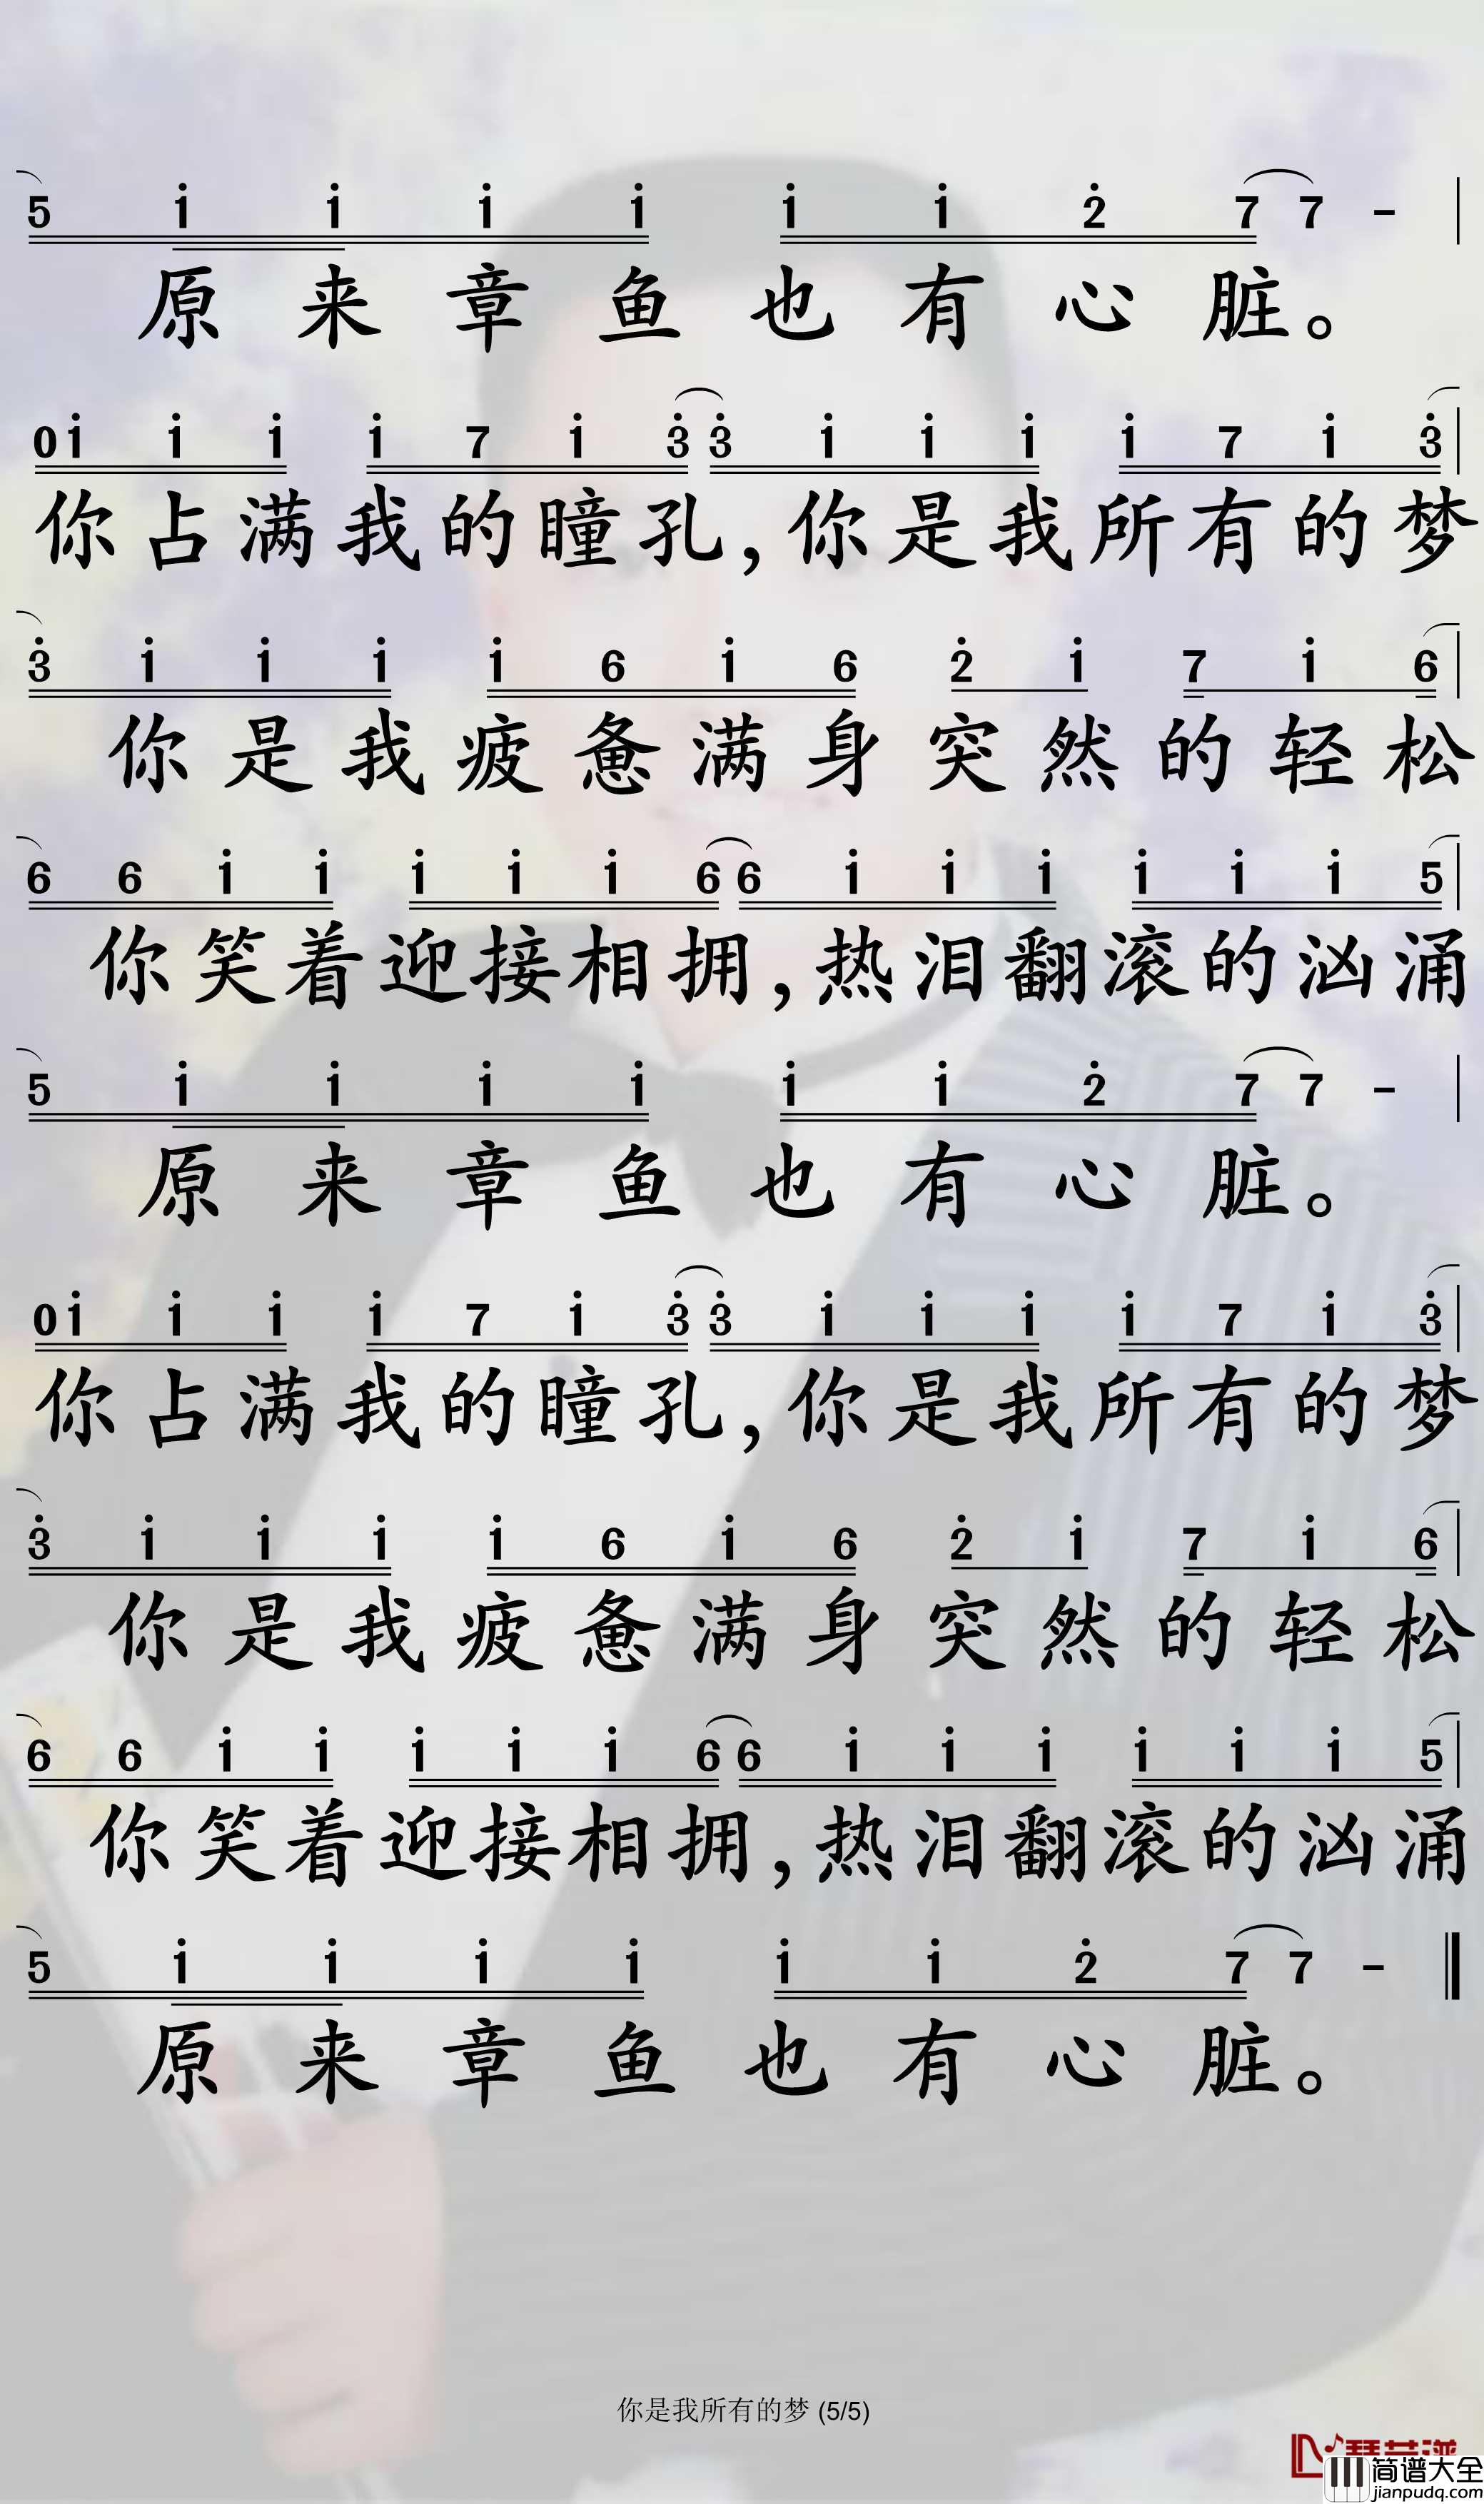 5 i i i i i i 2 7 7 -
原来章鱼也有心脏。
0 i i i i 7 i 3 3 i i i i 7 i 3
你占满我的瞳孔,你是我所有的梦
3 i i i i 6 i 6 2 i 7 i 6
你是我疲惫满身突然的轻松
6 6 i i i i i 6 6 i i i i i i 5
你笑着迎接相拥,热泪翻滚的汹涌
5 i i i i i i 2 7 7 -
原来章鱼也有心脏。
0 i i i i 7 i 3 3 i i i i 7 i 3
你占满我的瞳孔,你是我所有的梦
3 i i i i 6 i 6 2 i 7 i 6
你是我疲惫满身突然的轻松
6 6 i i i i i 6 6 i i i i i i 5
你笑着迎接相拥,热泪翻滚的汹涌
5 i i i i i i 2 7 7 -
原来章鱼也有心脏。
你是我所有的梦 (5/5)
简谱大全
jianpudq.com